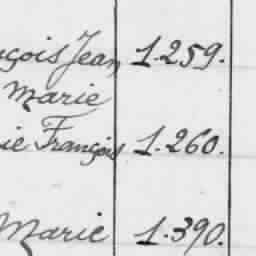 nçois Jean 1.259.
Marie
ie François 1.260.
Marie 1.390.